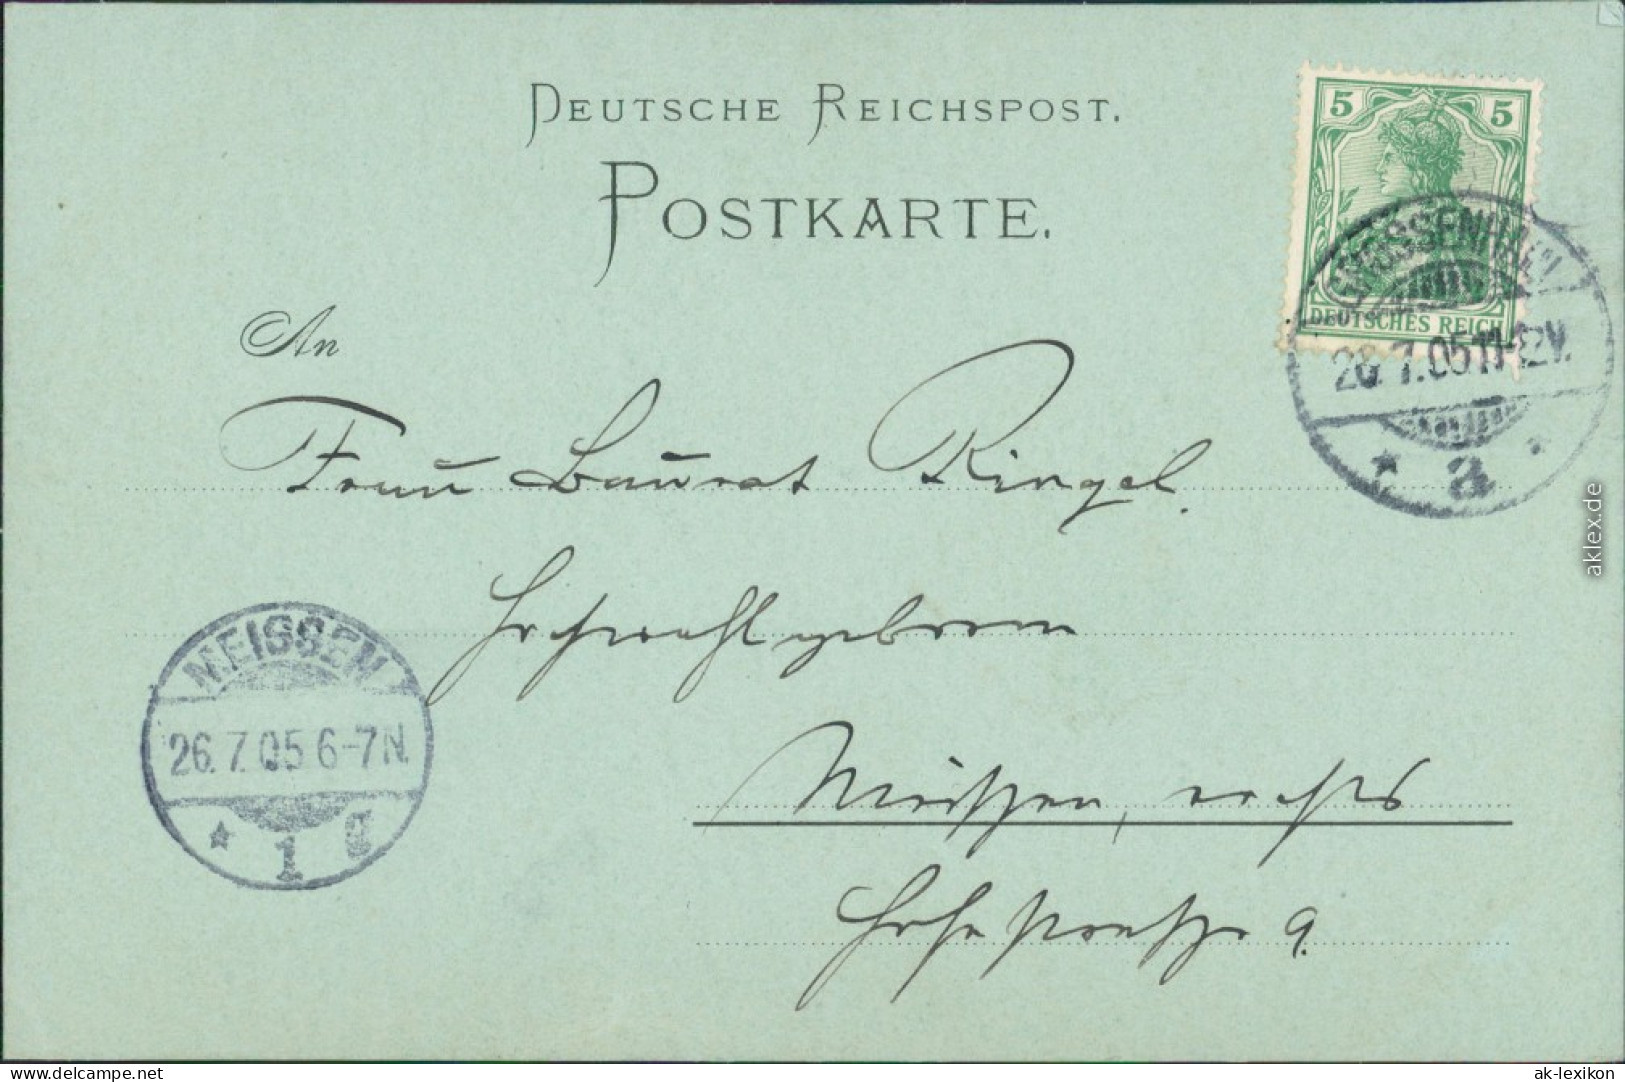 DEUTSCHE REICHSPOST.
POSTKARTE.
5 5
DEUTSCHES REICH
GROSSENHAIN
26.7.05 11-12V.
* a *
An
Frau Baurat Ringel.
Hochwohlgeboren
Meißen, rechts
Hohe Straße 9.
MEISSEN
26.7.05 6-7N.
* 1 g
aklex.de
www.delcampe.net
ak-lexikon